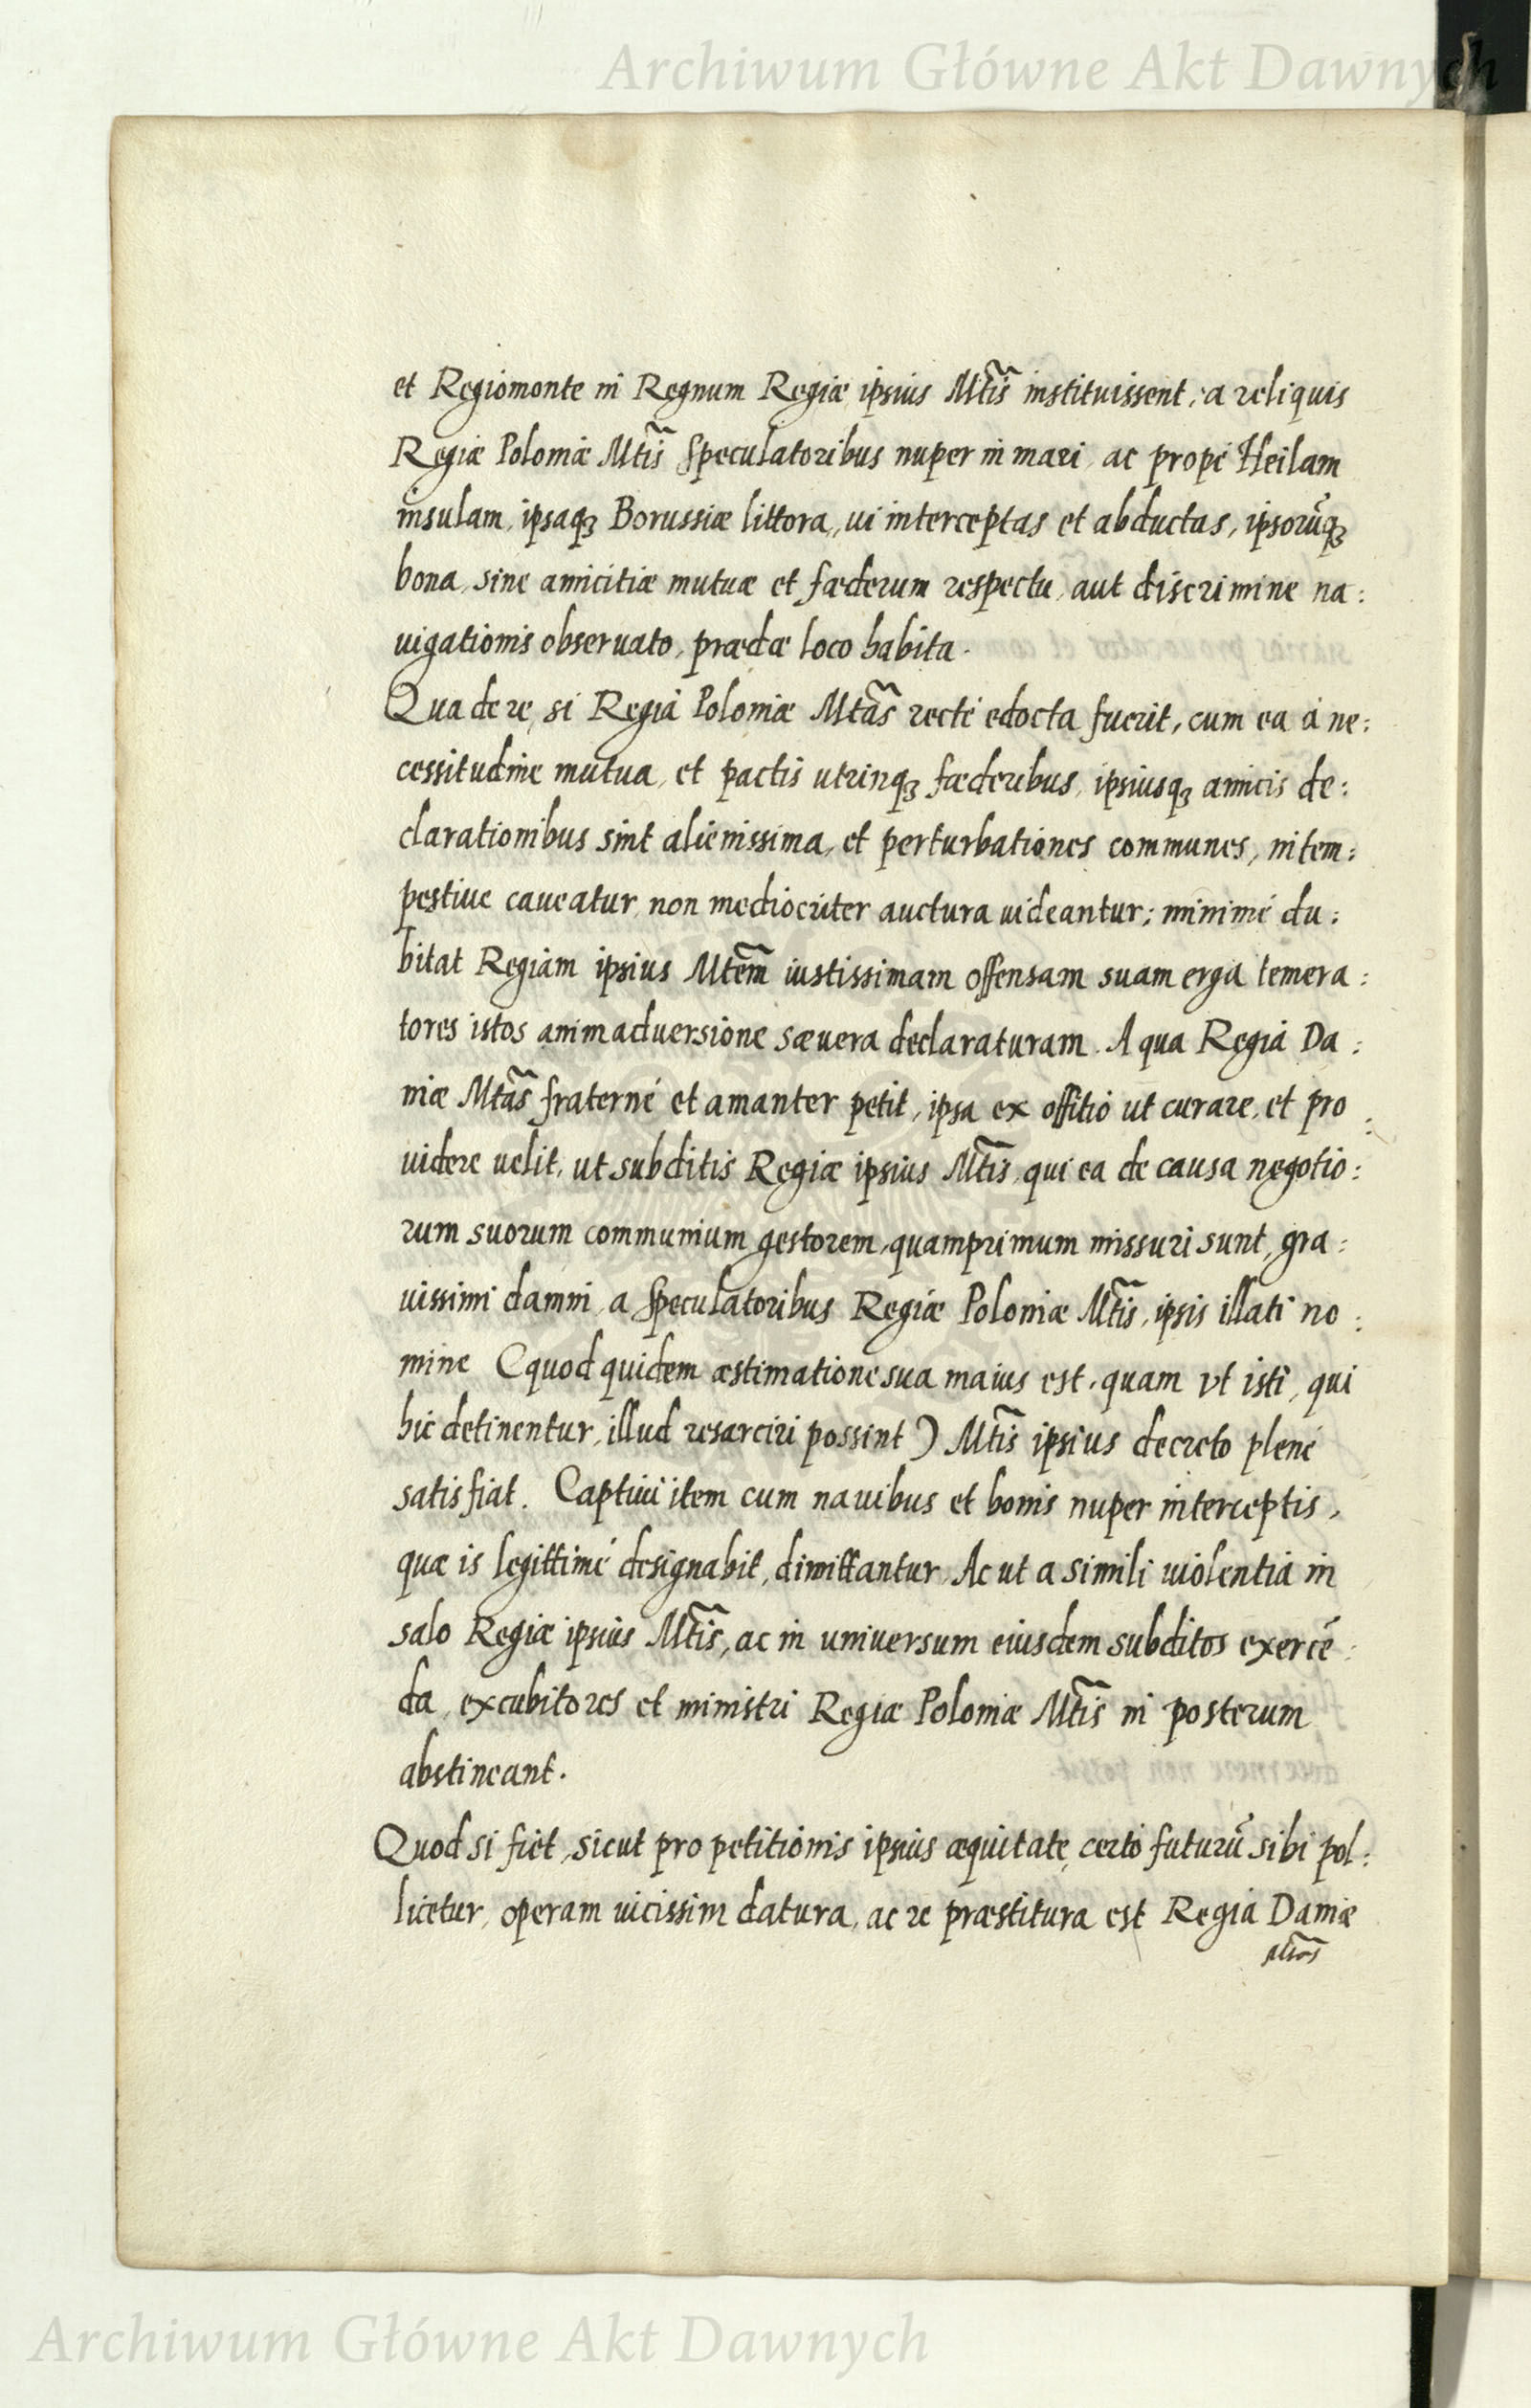 Archiwum Główne Akt Dawnych
et Regiomonte in Regnum Regiæ ipsius Mt̃is instituissent, a reliquis
Regiæ Poloniæ Mt̃is speculatoribus nuper in mari, ac propè Heilam
insulam, ipsaqꝫ Borussiæ littora, ui interceptas et abductas, ipsorũqꝫ
bona, sine amicitiæ mutuæ et fæderum respectu, aut discrimine na:
uigationis obseruato, prædæ loco habita.
Qua de re, si Regia Poloniæ Mt̃as rectè edocta fuerit, cum ea à ne:
cessitudine mutua, et pactis utrinqꝫ fæderibus, ipsiusqꝫ amicis de:
clarationibus sint alienissima, et perturbationes communes, ni tem:
pestiue caueatur, non mediocriter auctura uideantur; minimè du:
bitat Regiam ipsius Mt̃em iustissimam offensam suam erga temera:
tores istos animaduersione sæuera declaraturam. A qua Regia Da:
niæ Mt̃as fraternè et amanter petit, ipsa ex offitio ut curare, et pro:
uidere uelit, ut subditis Regiæ ipsius Mt̃is, qui ea de causa negotio:
rum suorum communium gestorem, quamprimum missuri sunt, gra:
uissimi damni, a speculatoribus Regiæ Poloniæ Mt̃is, ipsis illati no:
mine (quod quidem æstimatione sua maius est, quam vt isti, qui
hic detinentur, illud resarciri possint) Mt̃is ipsius decreto plenè
satisfiat. Captiui item cum nauibus et bonis nuper interceptis,
quæ is legittimè designabit, dimittantur. Ac ut a simili uiolentia in
salo Regiæ ipsius Mt̃is, ac in uniuersum eiusdem subditos exercẽ:
da, excubitores et ministri Regiæ Poloniæ Mt̃is in posterum
abstineant.
Quod si fiet, sicut pro petitionis ipsius æquitate, certò futurũ sibi pol:
licetur, operam uicissim datura, ac re præstitura est Regia Daniæ
Mt̃as
Archiwum Główne Akt Dawnych